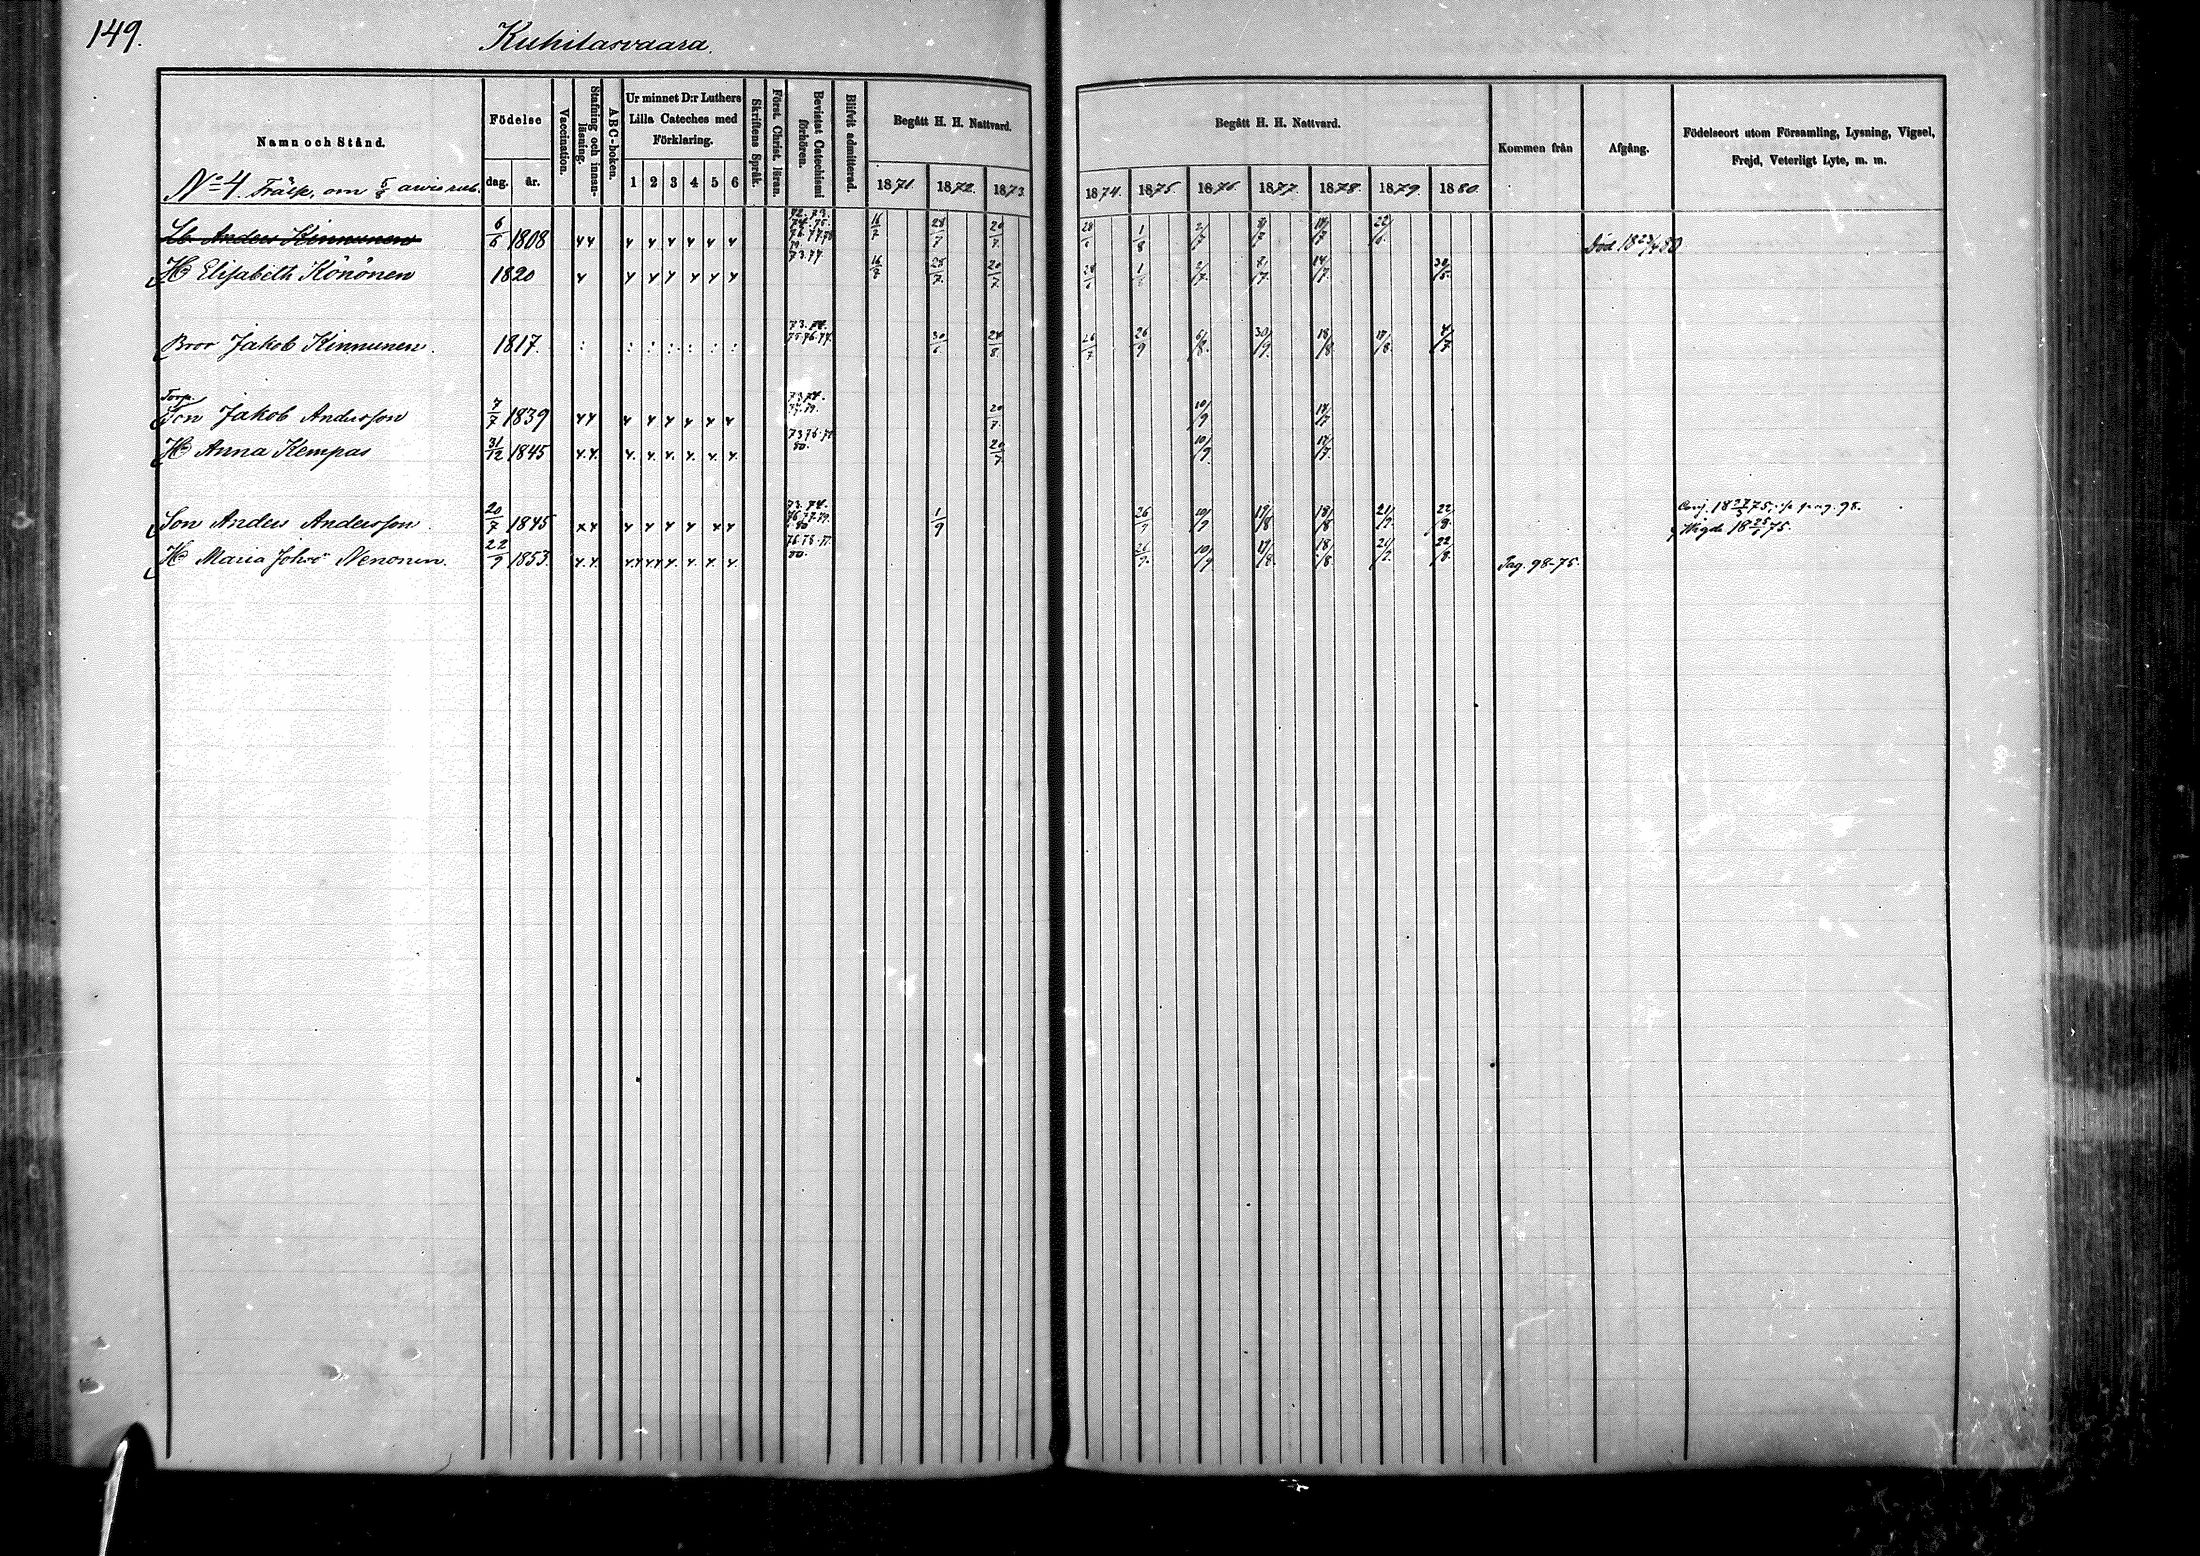 149.
Kuhilasvaara.
Namn och Stånd.
Födelse
dag. år.
Vaccination.
Stafning och innan-läsning.
ABC-boken.
Ur minnet D:r Luthers
Lilla Cateches med
Förklaring.
1 2 3 4 5 6
Skriftens Språk.
Först. Christ. läran.
Bevistat Catechismi förhören.
Blifvit admitterad.
Begått H. H. Nattvard.
1871. 1872. 1873.
Begått H. H. Nattvard.
1874. 1875. 1876. 1877. 1878. 1879. 1880.
Kommen från
Afgång.
Födelseort utom Församling, Lysning, Vigsel,
Frejd, Veterligt Lyte, m. m.
No 4 om
Lb. Anders Kinnunen 6/6 1808 16/2 28/7 20/7 28/6 1/8 2/7 14/7 Död 18 23/4 80
H Elisabeth Könönen 1820 73.77. 16/2 28/7 20/7 28/6 2/7 14/7 30/5
Bror Jakob Kinnunen. 1817. 73.74. 75.76.77. 30/6 24/8 26/7 26/9 6/8 30/9 18/8 17/8 4/7
Torp.
Son Jakob Andersson 7/7 1839 73.74. 20/7 10/9 14/7
H Anna Kempas 31/12 1845 80. 20/7 10/9 14/7
Son Anders Andersson. 20/7 1845 73.74. 1/9 26/9 10/9 19/8 18/8 21/7 22/8 75. pag. 98.
Vigde 18 25/7 75.
H Maria Joh:s Nenonen. 22/9 1853. 80. 26/9 10/9 19/8 18/8 22/8 Pag. 98-75.